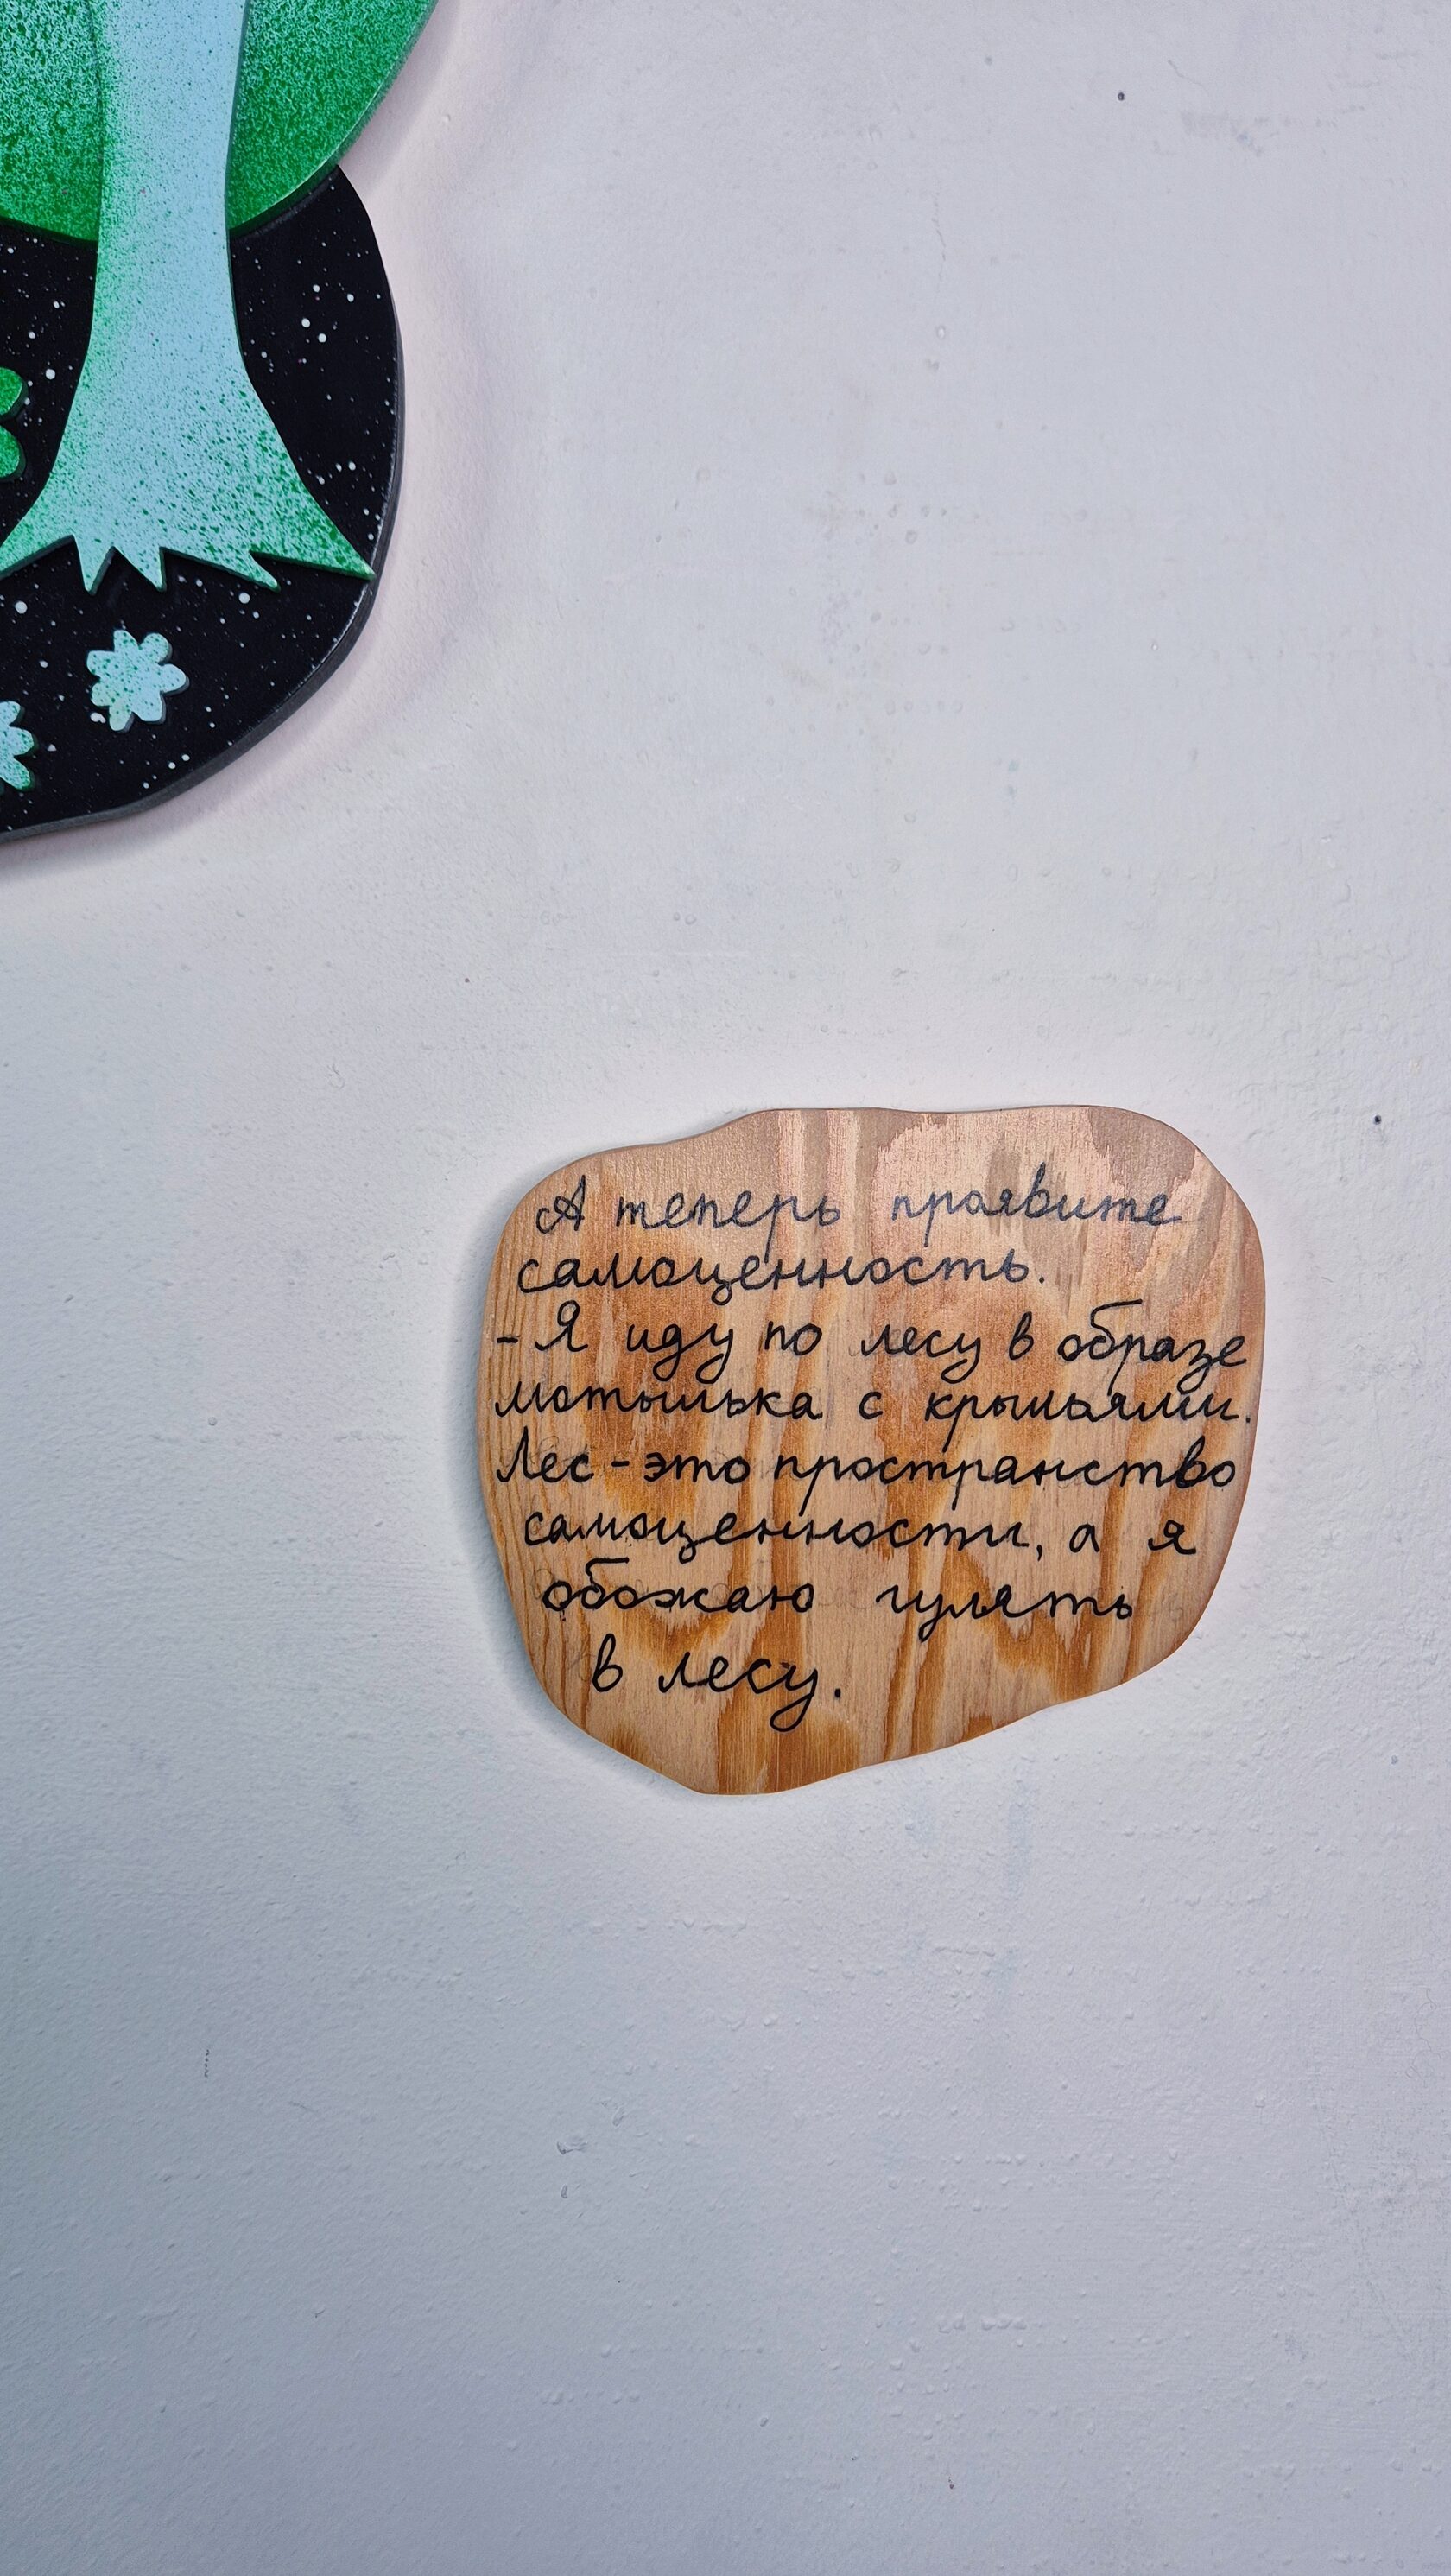 А теперь проявите
самоценность.
- Я иду по лесу в образе
мотылька с крыльями.
Лес - это пространство
самоценности, а я
обожаю гулять
в лесу.